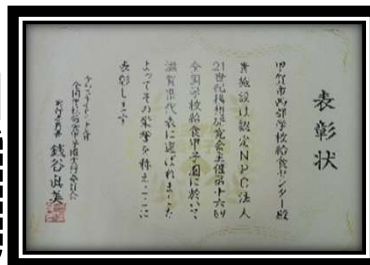 表彰状
甲賀市西部学校給食センター殿
貴施設は認定NPO法人
21世紀構想研究会主催第十六回
全国学校給食甲子園に於いて
滋賀県代表に選ばれました
よってその栄誉を称えここに
表彰します
全国学校給食甲子園実行委員会
実行委員長 銭谷眞美